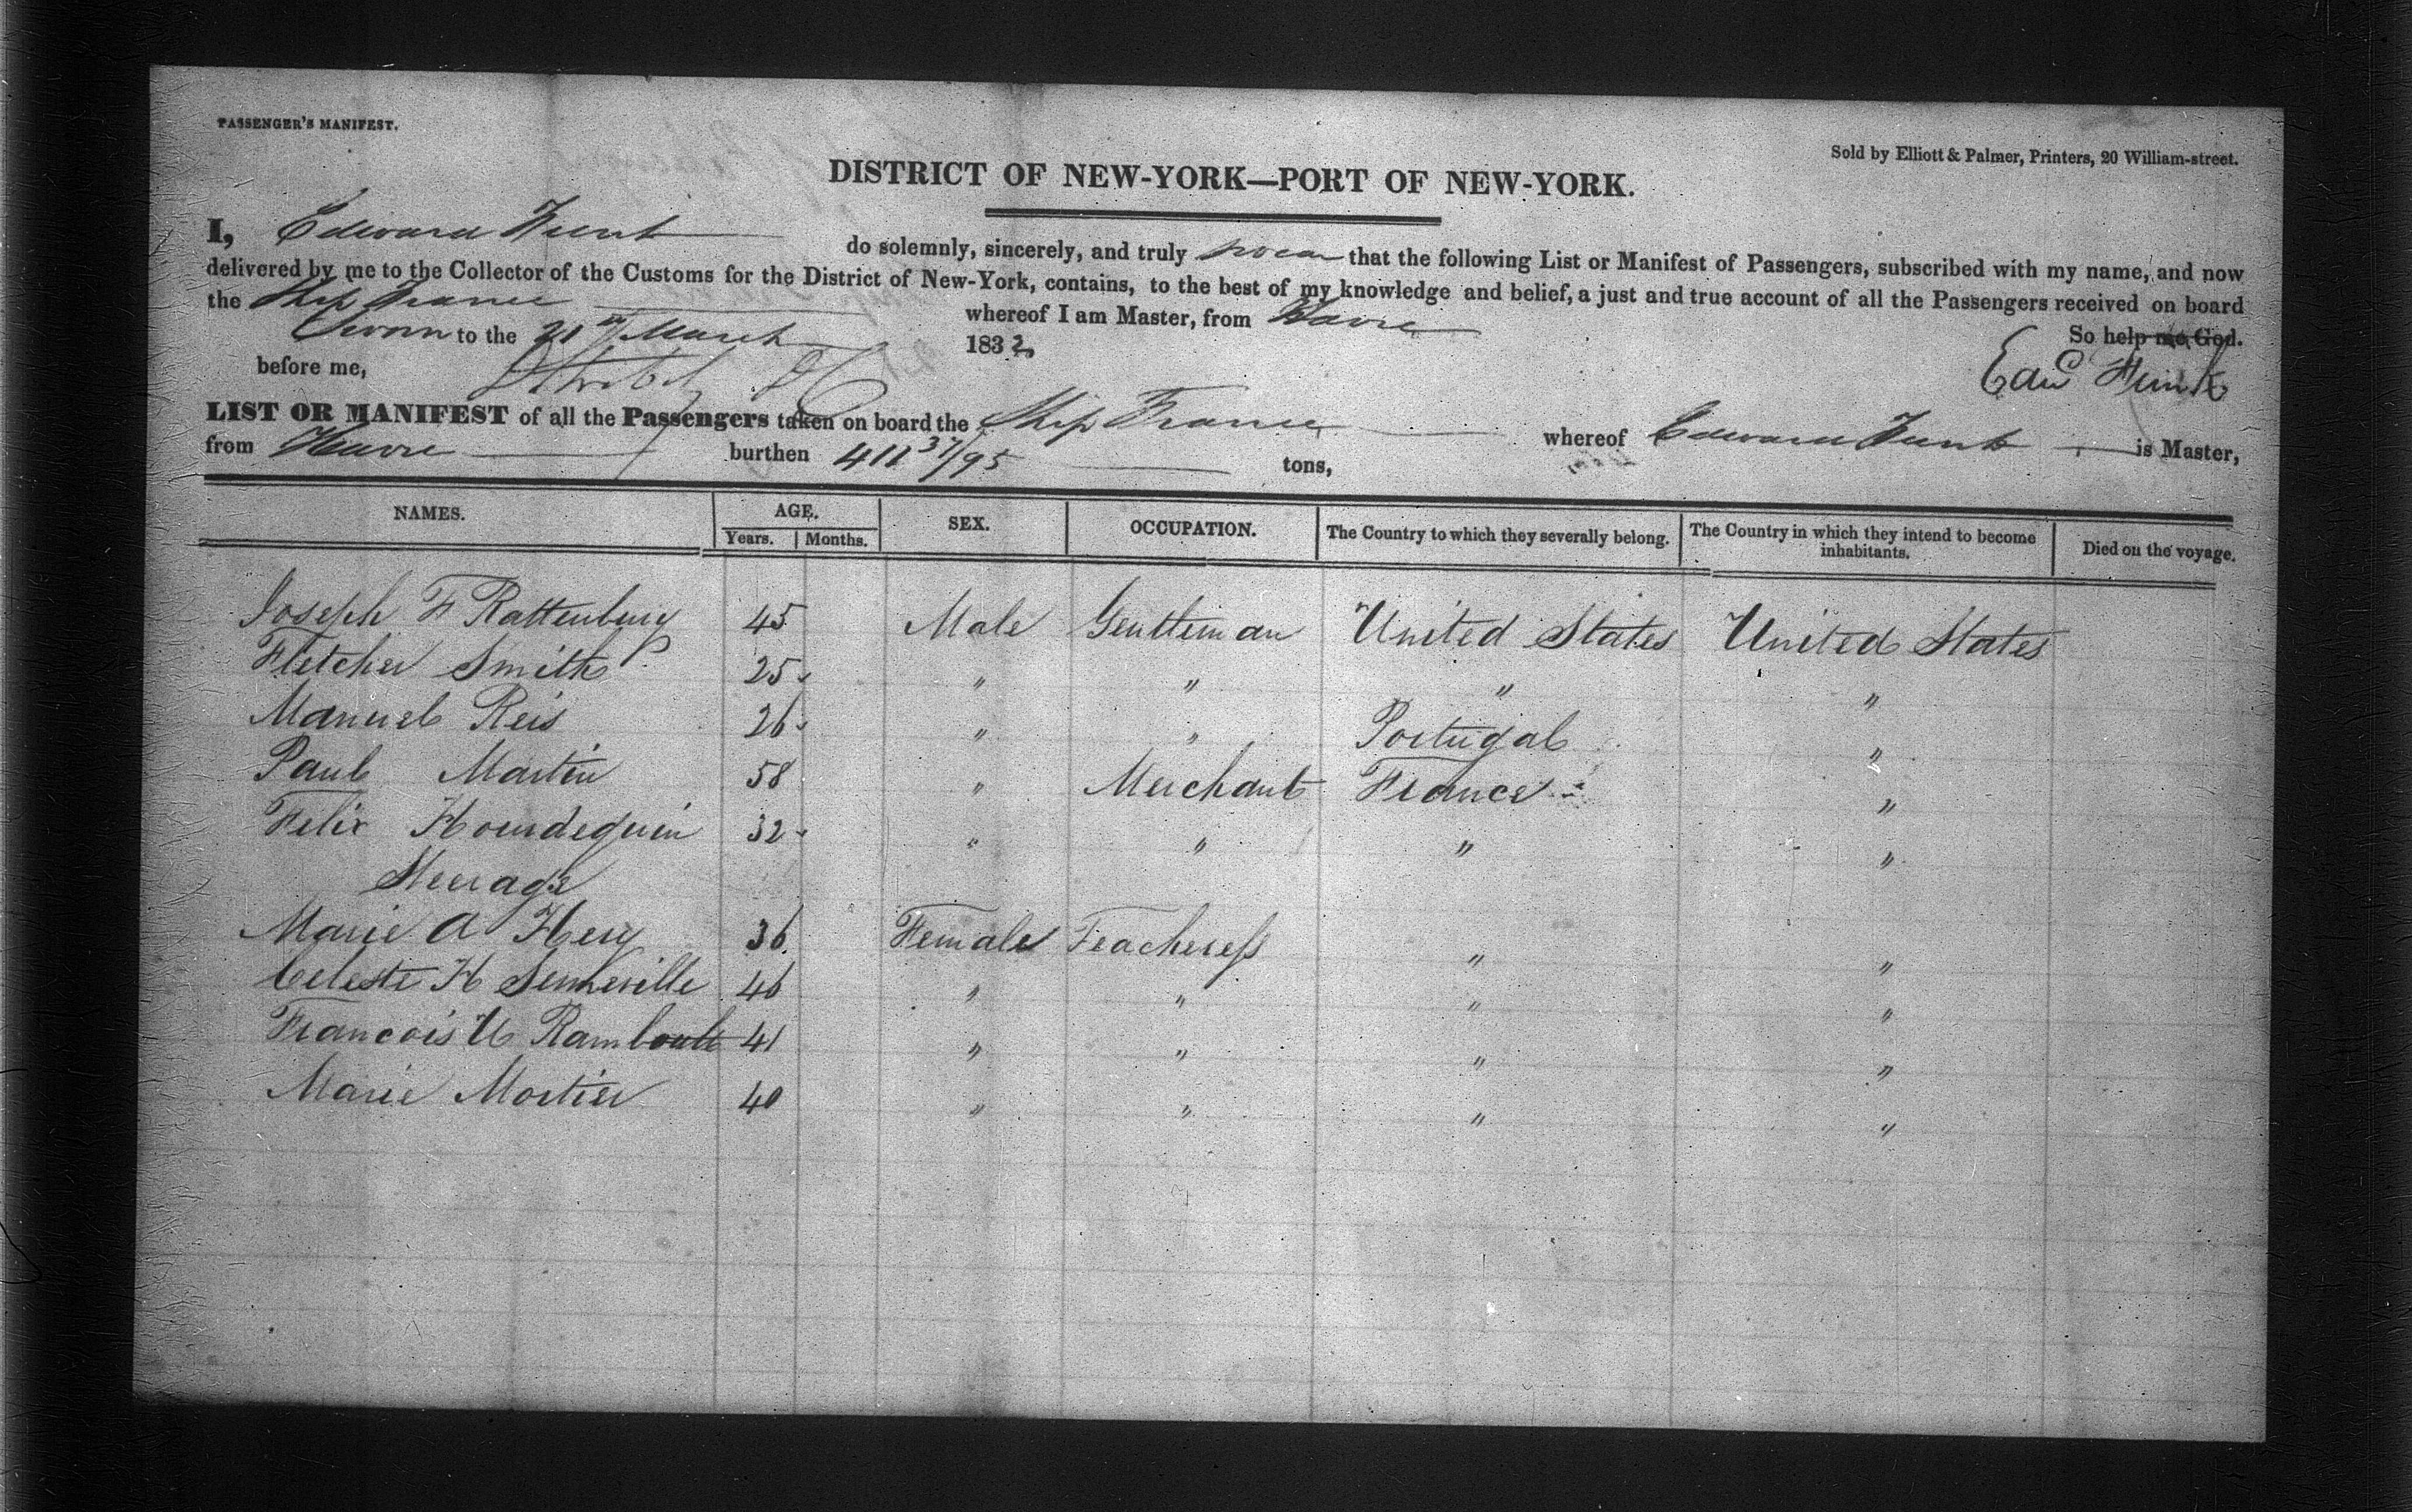 PASSENGER'S MANIFEST.
Sold by Elliott & Palmer, Printers, 20 William-street.
DISTRICT OF NEW-YORK—PORT OF NEW-YORK.
I, Edward Funk do solemnly, sincerely, and truly swear that the following List or Manifest of Passengers, subscribed with my name, and now
delivered by me to the Collector of the Customs for the District of New-York, contains, to the best of my knowledge and belief, a just and true account of all the Passengers received on board
the Ship France whereof I am Master, from Havre
So help me God.
Sworn to the 21 March 1832
before me,
Edwd Funk
LIST OR MANIFEST of all the Passengers taken on board the Ship France whereof Edward Funk is Master,
from Havre burthen 411 37/95 tons,
NAMES. AGE. SEX. OCCUPATION. The Country to which they severally belong. The Country in which they intend to become inhabitants. Died on the voyage.
Years. Months.
Joseph F Rattenbury 45 Male Gentleman United States United States
Fletcher Smith 25 " " " "
Manuel Reis 26 " " Portugal "
Paul Martin 58 " Merchant France "
Felix Hourdequin 32 " " " "
Steerage
Marie A Hery 36 Female Teacheress " "
Celeste H Senneville 46 " " " "
Francois U Ramboult 41 " " " "
Marie Mortier 40 " " " "